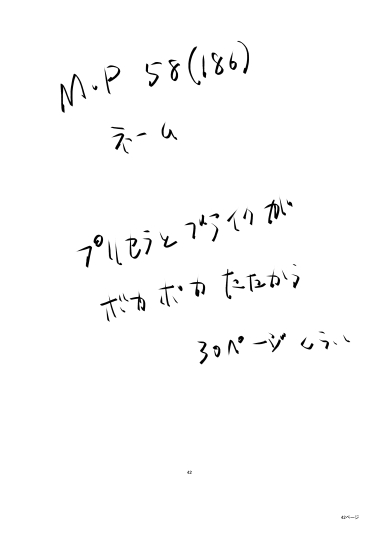 M.P 58(186)
ネーム
プルセラとブライクが
ボカボカたたかう
30ページくらい
42
42ページ